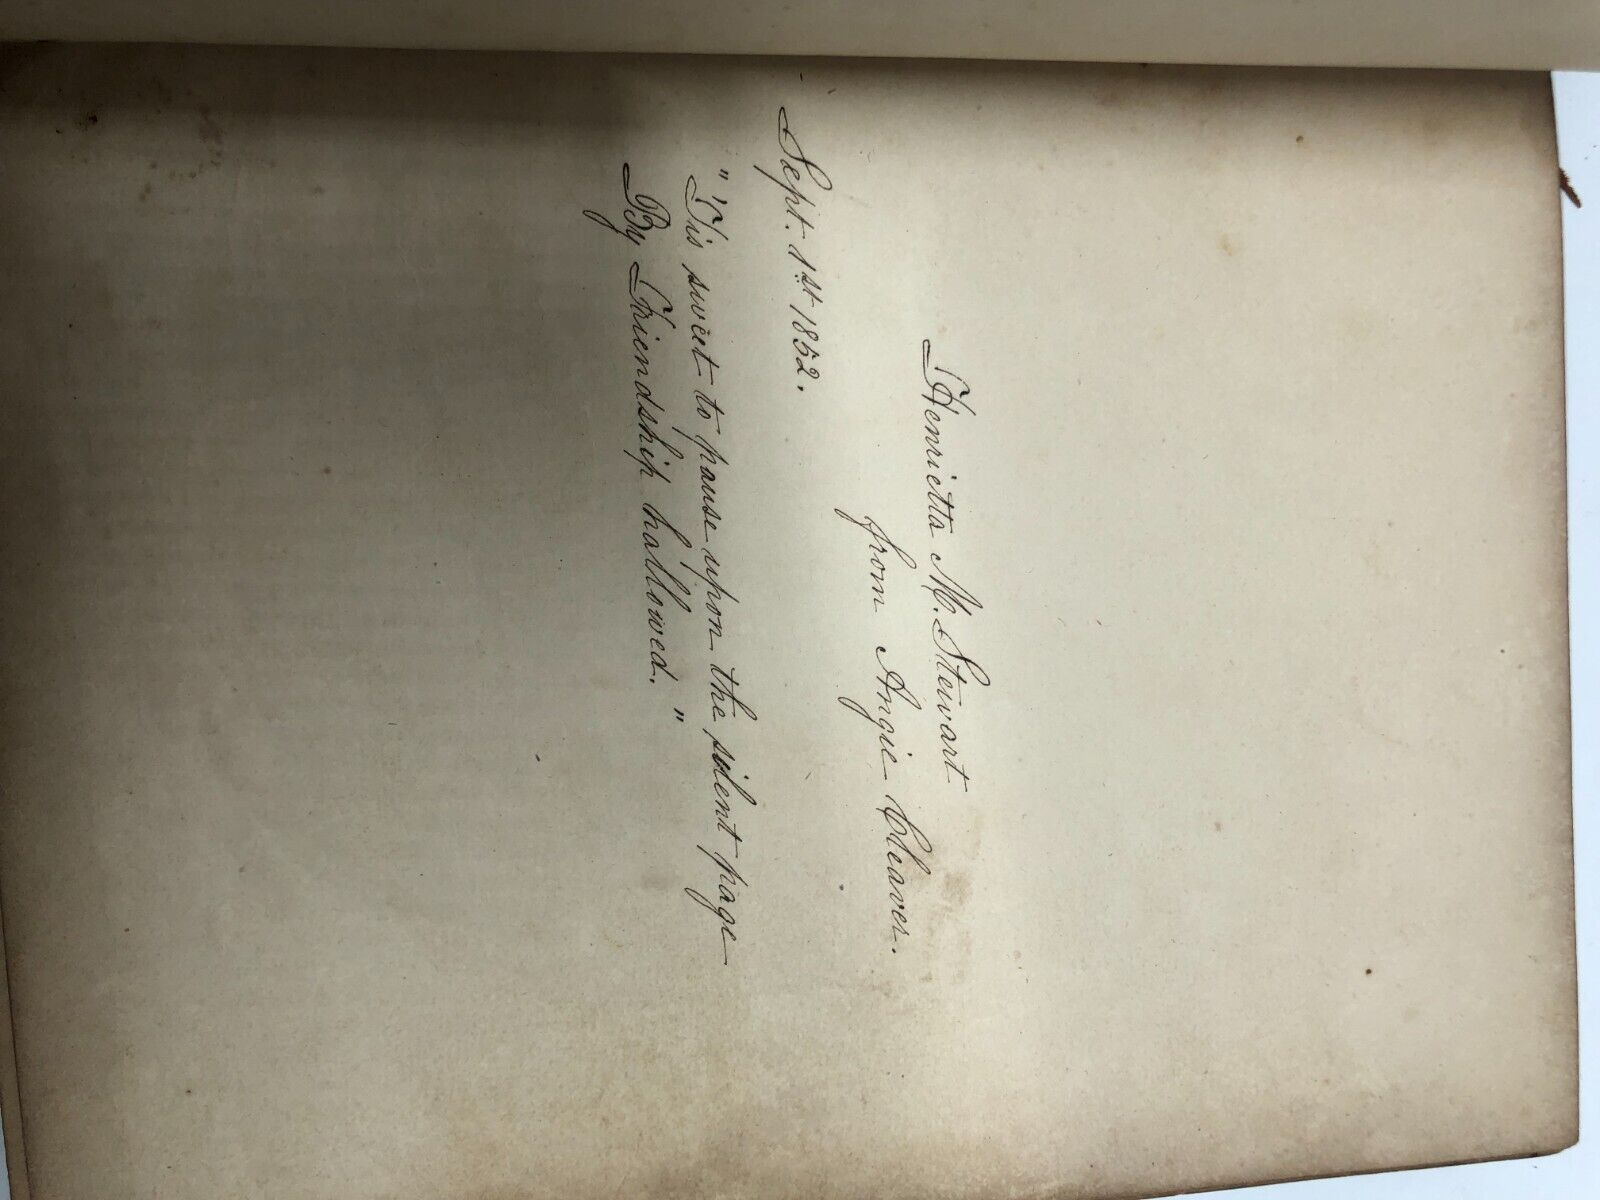 Henrietta M. Stewart
from Angie Cleaver.
Sept. 1st 1852.
" 'Tis sweet to pause upon the silent page
By Friendship hallowed. "